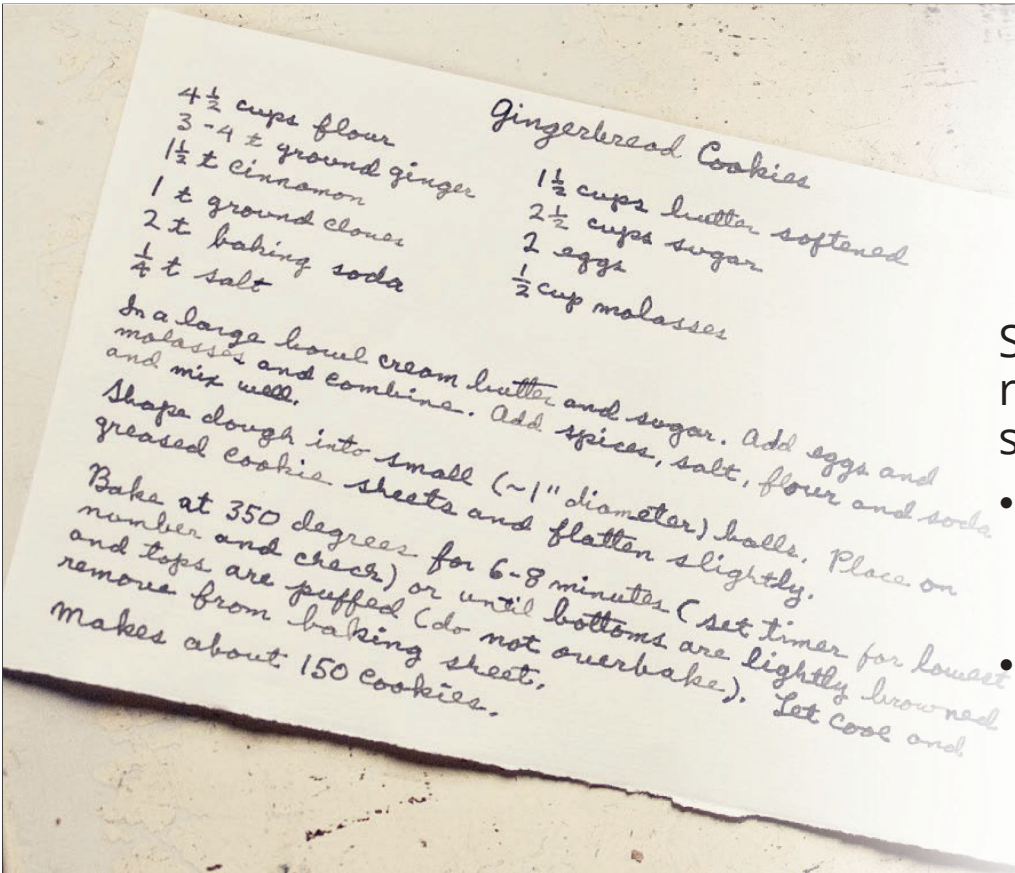 Gingerbread Cookies
4 ½ cups flour
3-4 t ground ginger
1½ t cinnamon
1 t ground cloves
2 t baking soda
¼ t salt
1½ cups butter softened
2½ cups sugar
2 eggs
½ cup molasses
In a large bowl cream butter and sugar. Add eggs and
molasses and combine. Add spices, salt, flour and soda
and mix well.
Shape dough into small (~1" diameter) balls. Place on
greased cookie sheets and flatten slightly.
Bake at 350 degrees for 6-8 minutes (set timer for lowest
number and check) or until bottoms are lightly browned
and tops are puffed (do not overbake). Let cool and
remove from baking sheet.
Makes about 150 cookies.